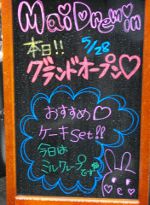 MaiDreamin
本日!! 5/28
グランドオープン♡
おすすめ♡
ケーキset!!
今日は
ミルクレープです